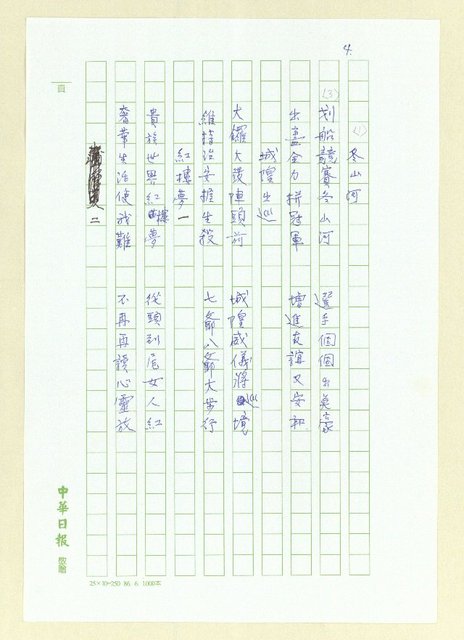 4.
(1)
冬山河
(3)
划船競賽冬山河 選手個個出英豪
出盡全力拼冠軍 增進友誼又安和
城隍出巡
大鑼大鼓陣頭前 城隍威儀將巡境
維持治安推生殺 七爺八爺大步行
紅樓夢一
貴族世界紅樓夢 從頭到尾女人紅
奢華生活使我難 不再再讀心靈放
二
頁
中華日報 敬贈
25×10=250 86 6 1000本